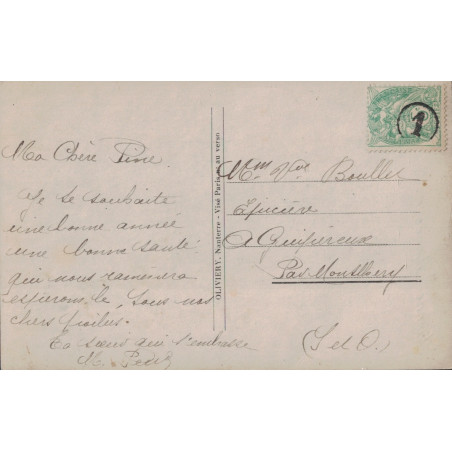 Ma Chère Fine
Je te souhaite
une bonne année
une bonne santé
qui nous ramènera
espérons le, tous nos
chers poilus.
Ta sœur qui t'embrasse
M.
OLIVIERY, Nanterre - Visé Paris au verso
Mme Vve Boullet
Epicière
A Guipereux
Par Montlhery
(S et O.)
1